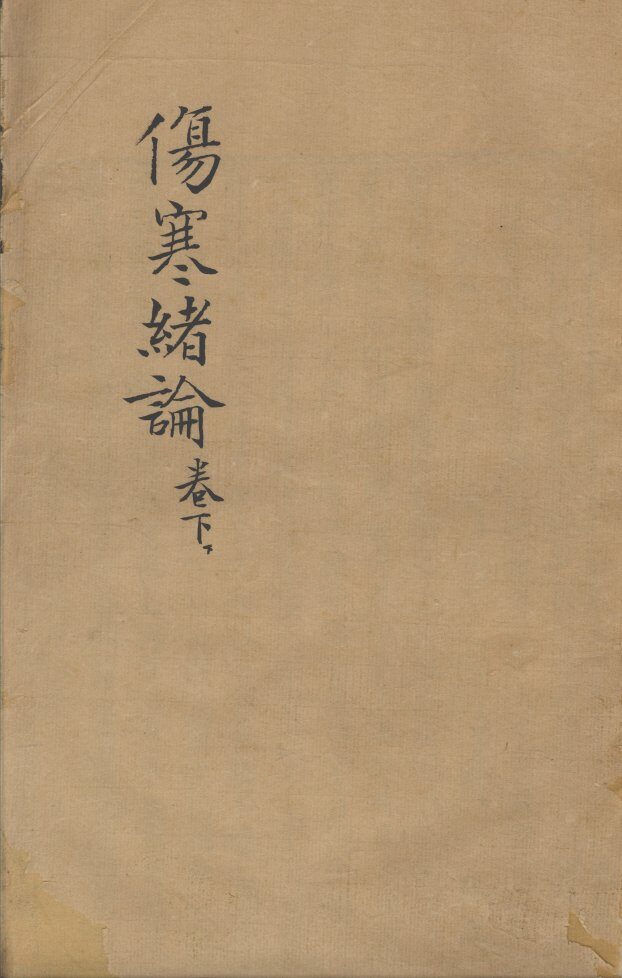 傷寒緒論卷下